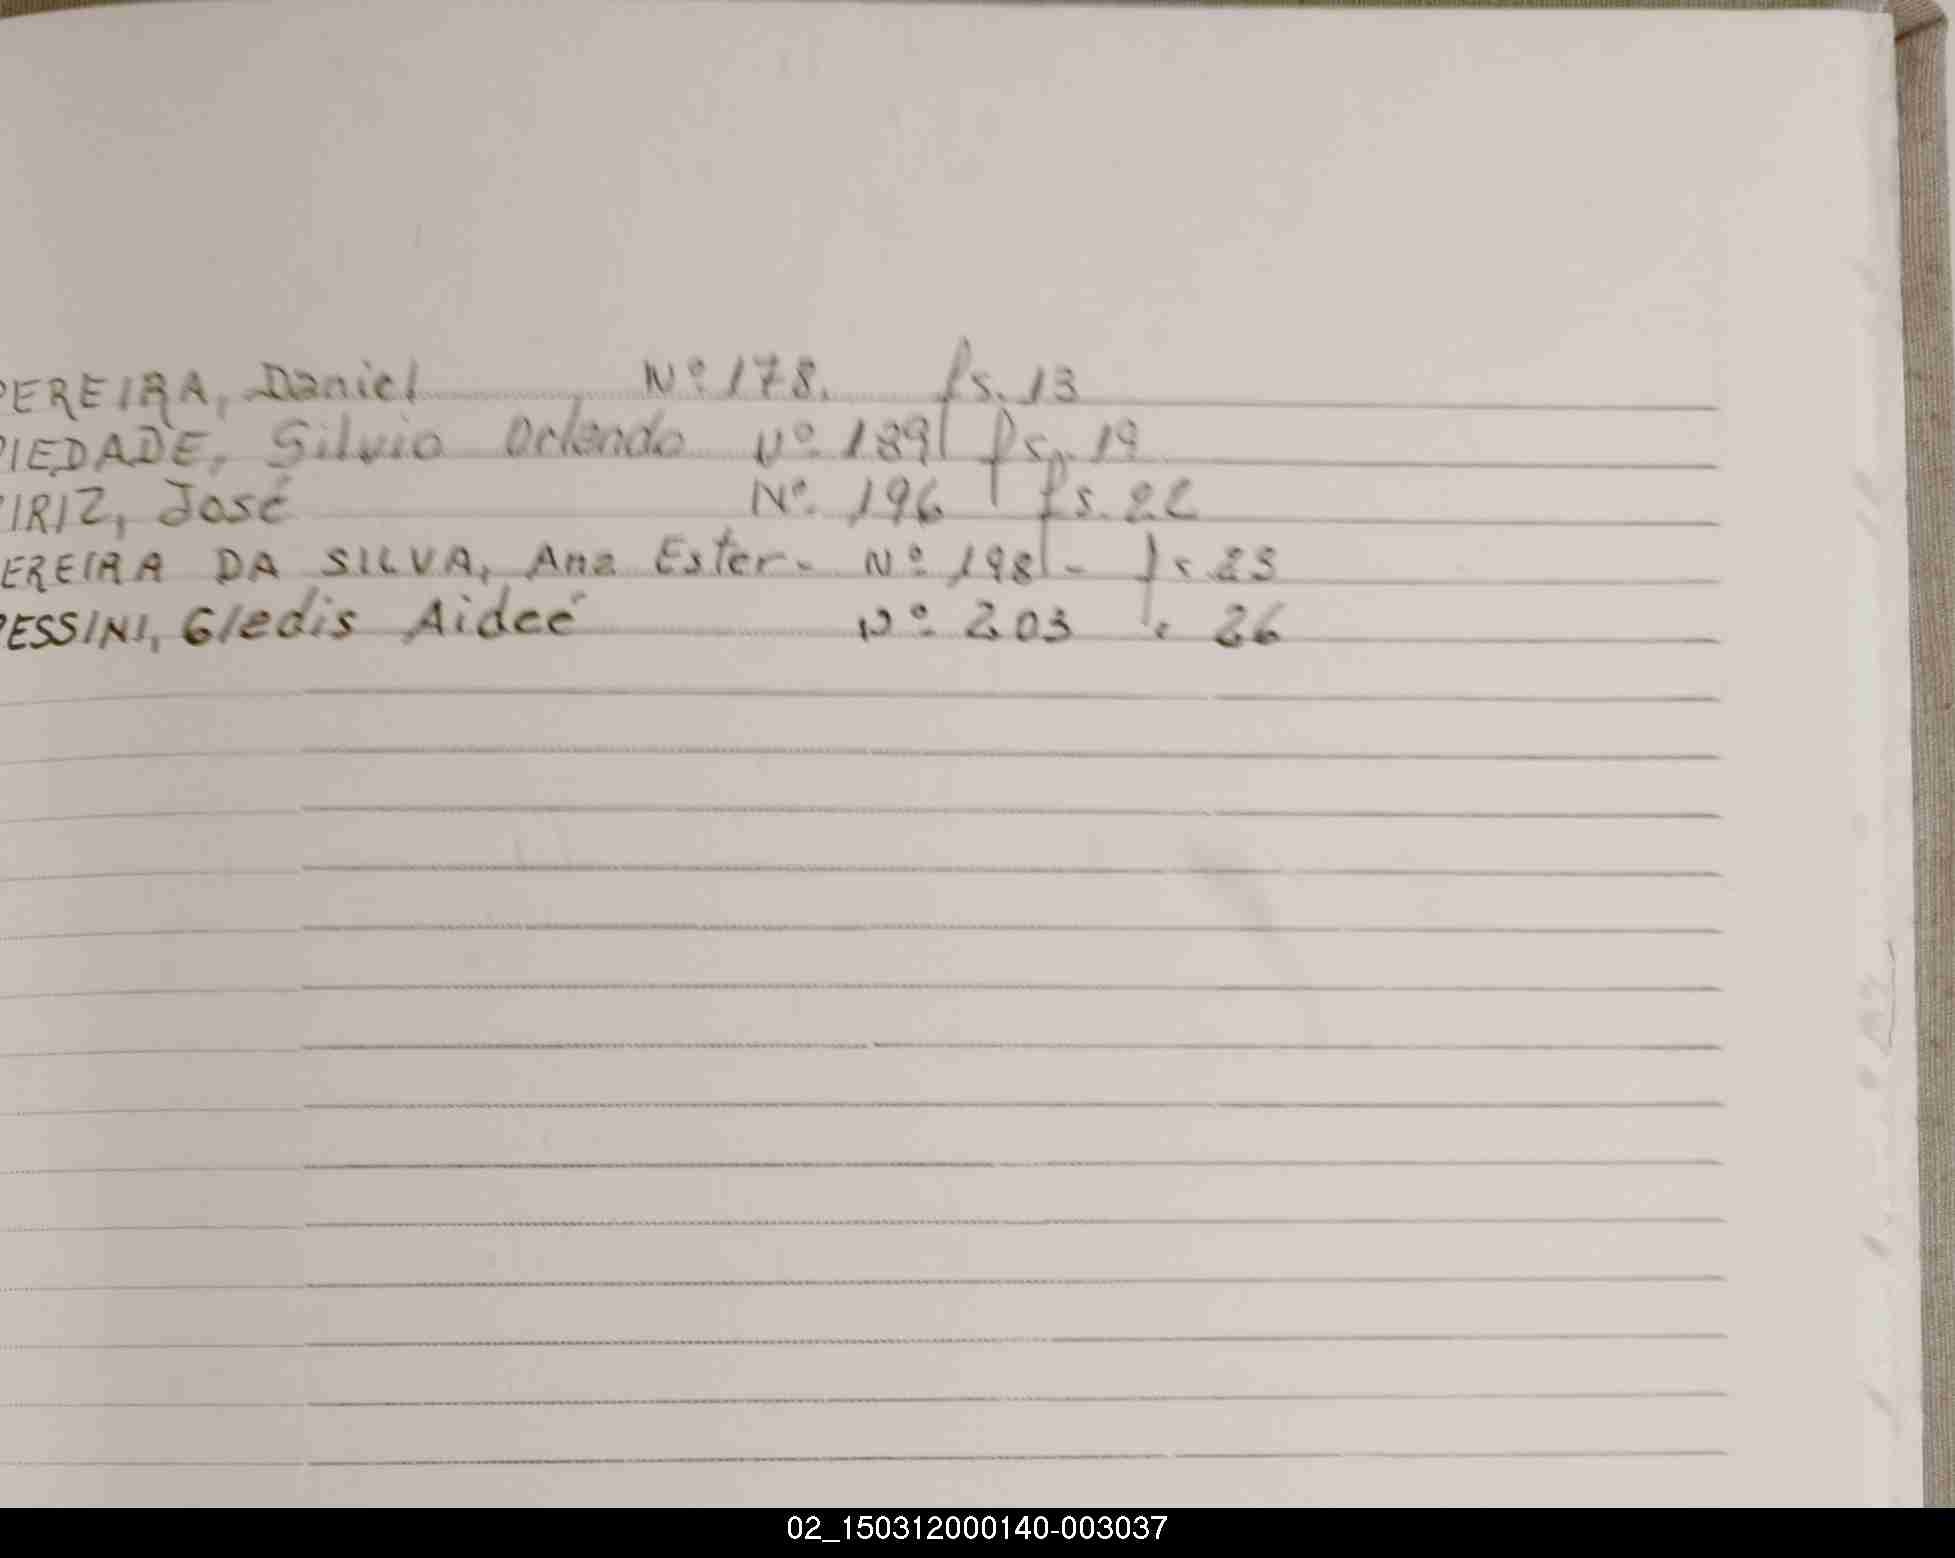 PEREIRA, Daniel Nº 178. fs. 13
PIEDADE, Silvio Orlando Nº 189 fs. 19
PIRIZ, José Nº 196 fs. 22
PEREIRA DA SILVA, Ana Ester- Nº 198 - fs 23
PESSINI, Gledis Aideé Nº 203 " 26
02_150312000140-003037